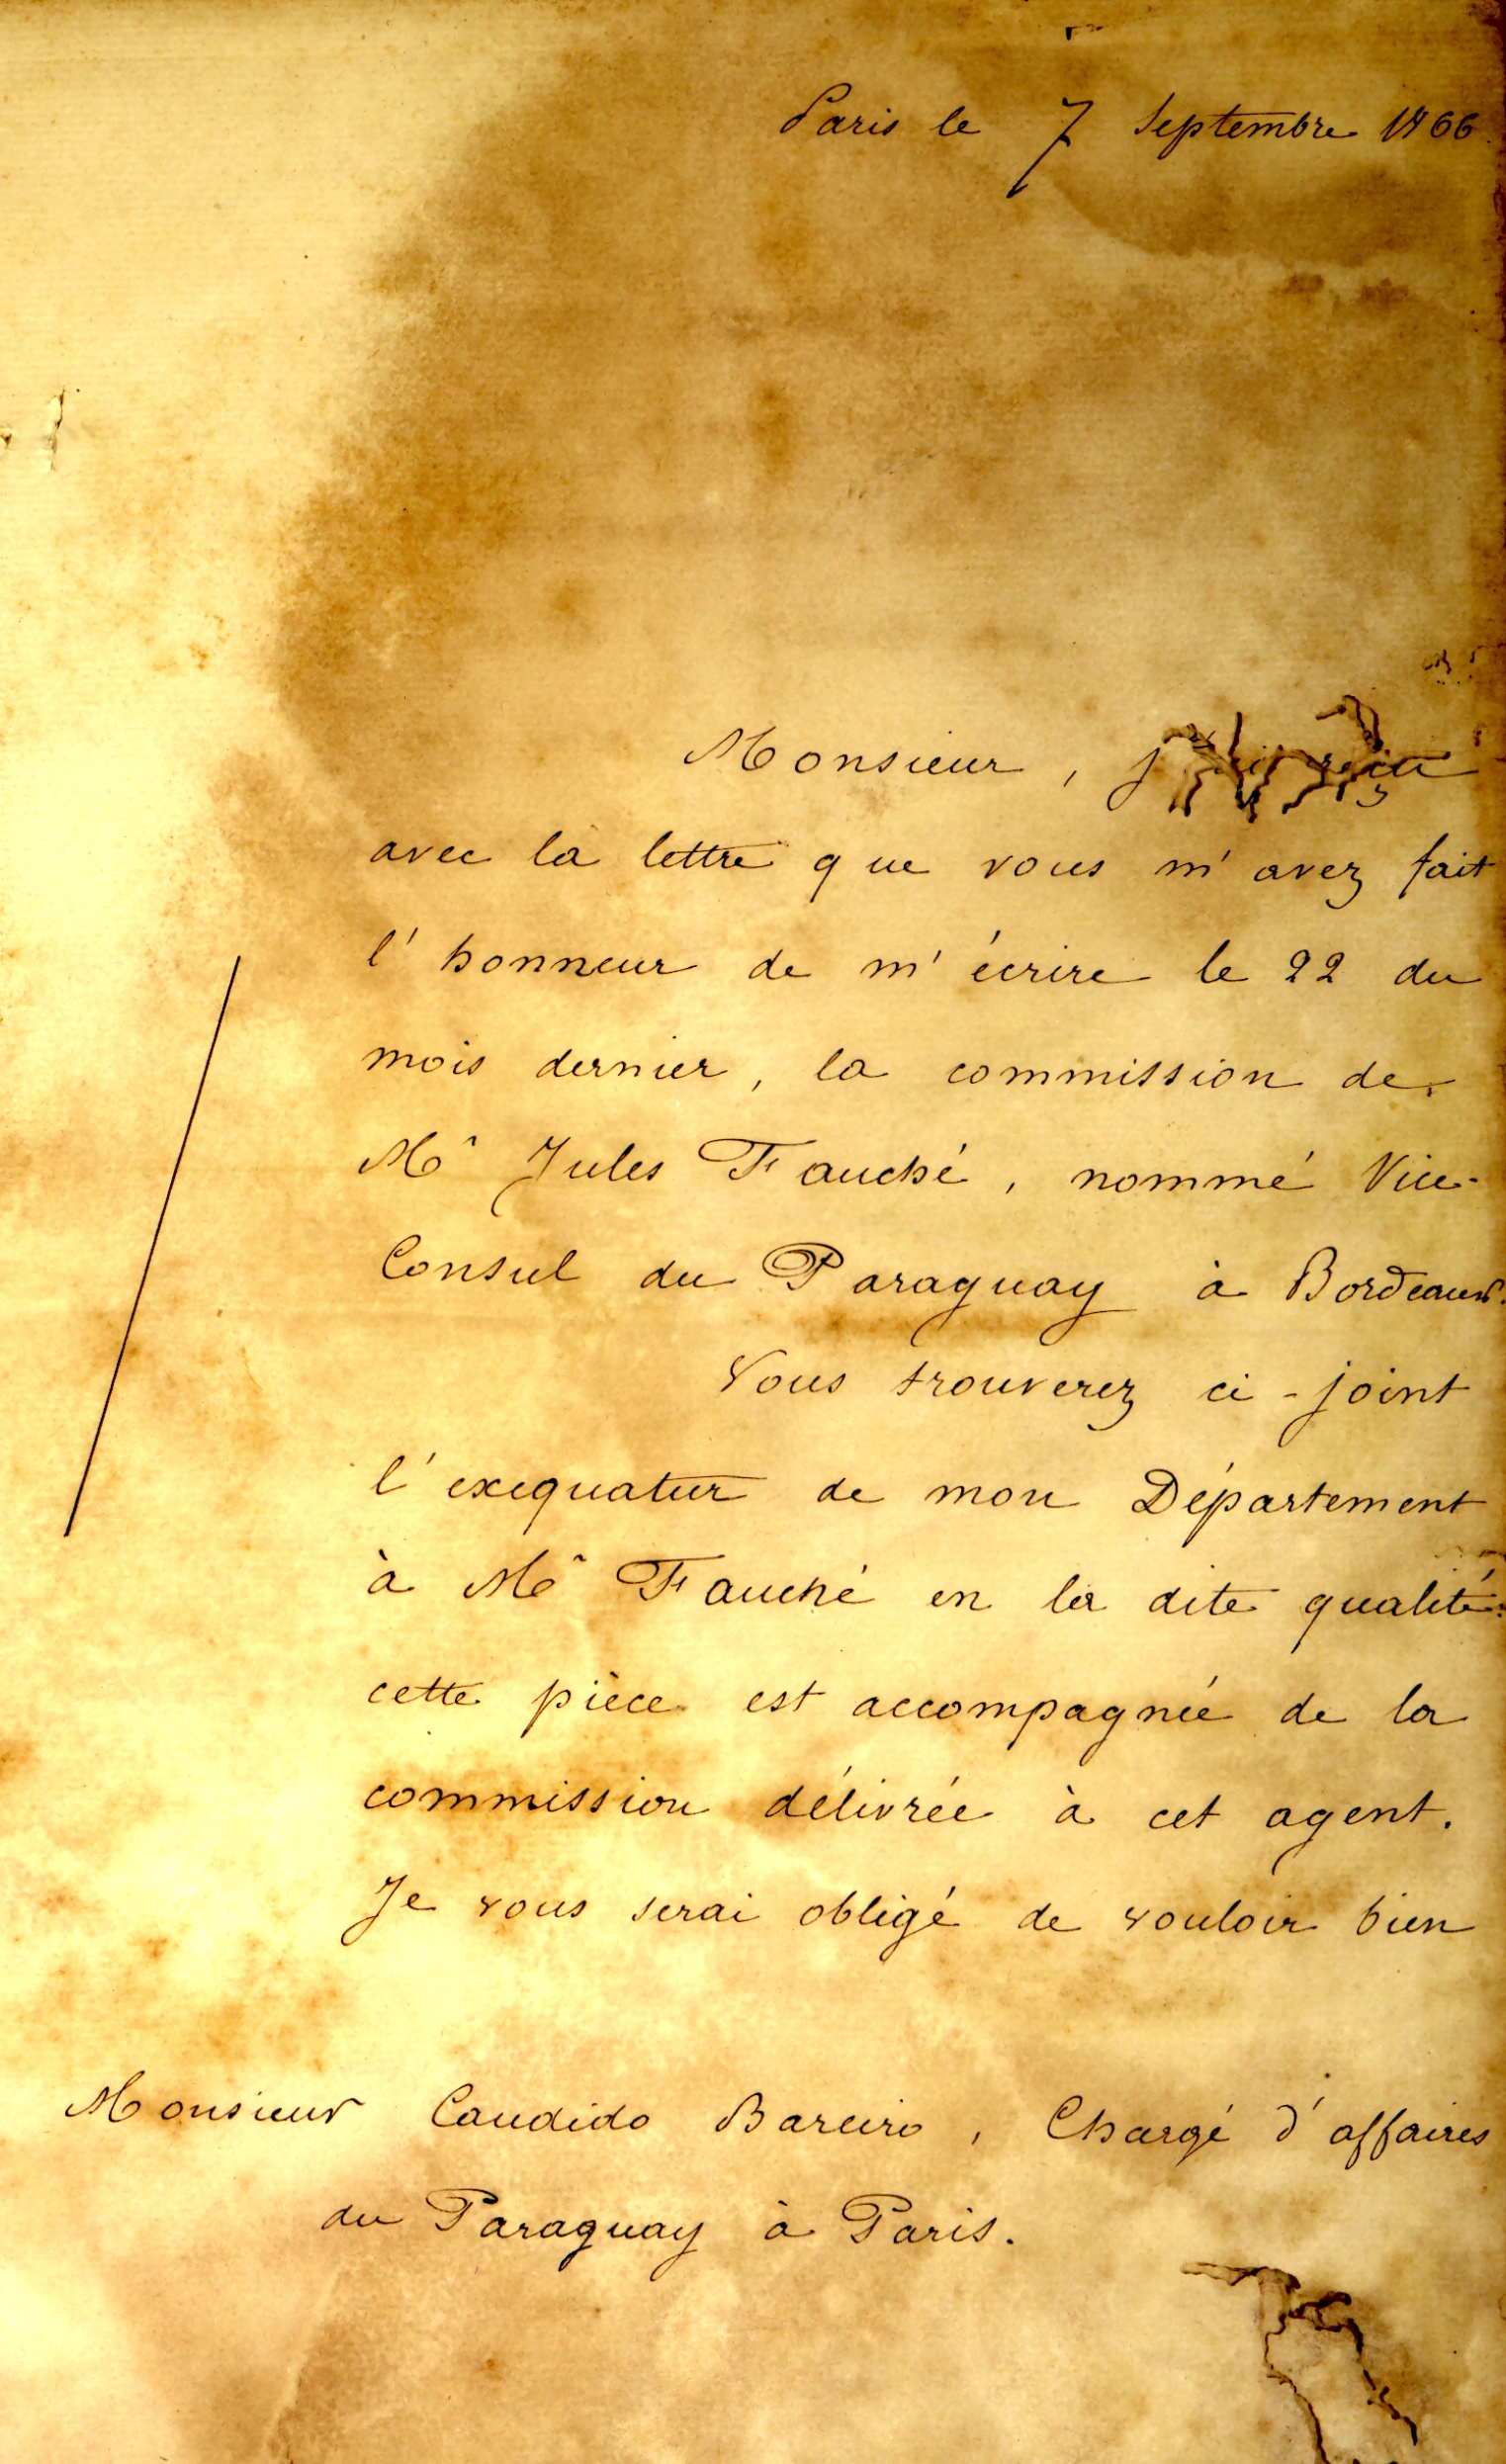 Paris le 7 Septembre 1866
Monsieur, j'
avec la lettre que vous m'avez fait
l'honneur de m'écrire le 22 du
mois dernier, la commission de
Mr Jules Fauché, nommé Vice-
Consul du Paraguay à Bordeaux.
Vous trouverez ci-joint
l'exequatur de mon Département
à Mr Fauché en la dite qualité:
cette pièce est accompagnée de la
commission délivrée à cet agent.
Je vous serai obligé de vouloir bien
Monsieur Candido Bareiro, Chargé d'affaires
du Paraguay à Paris.